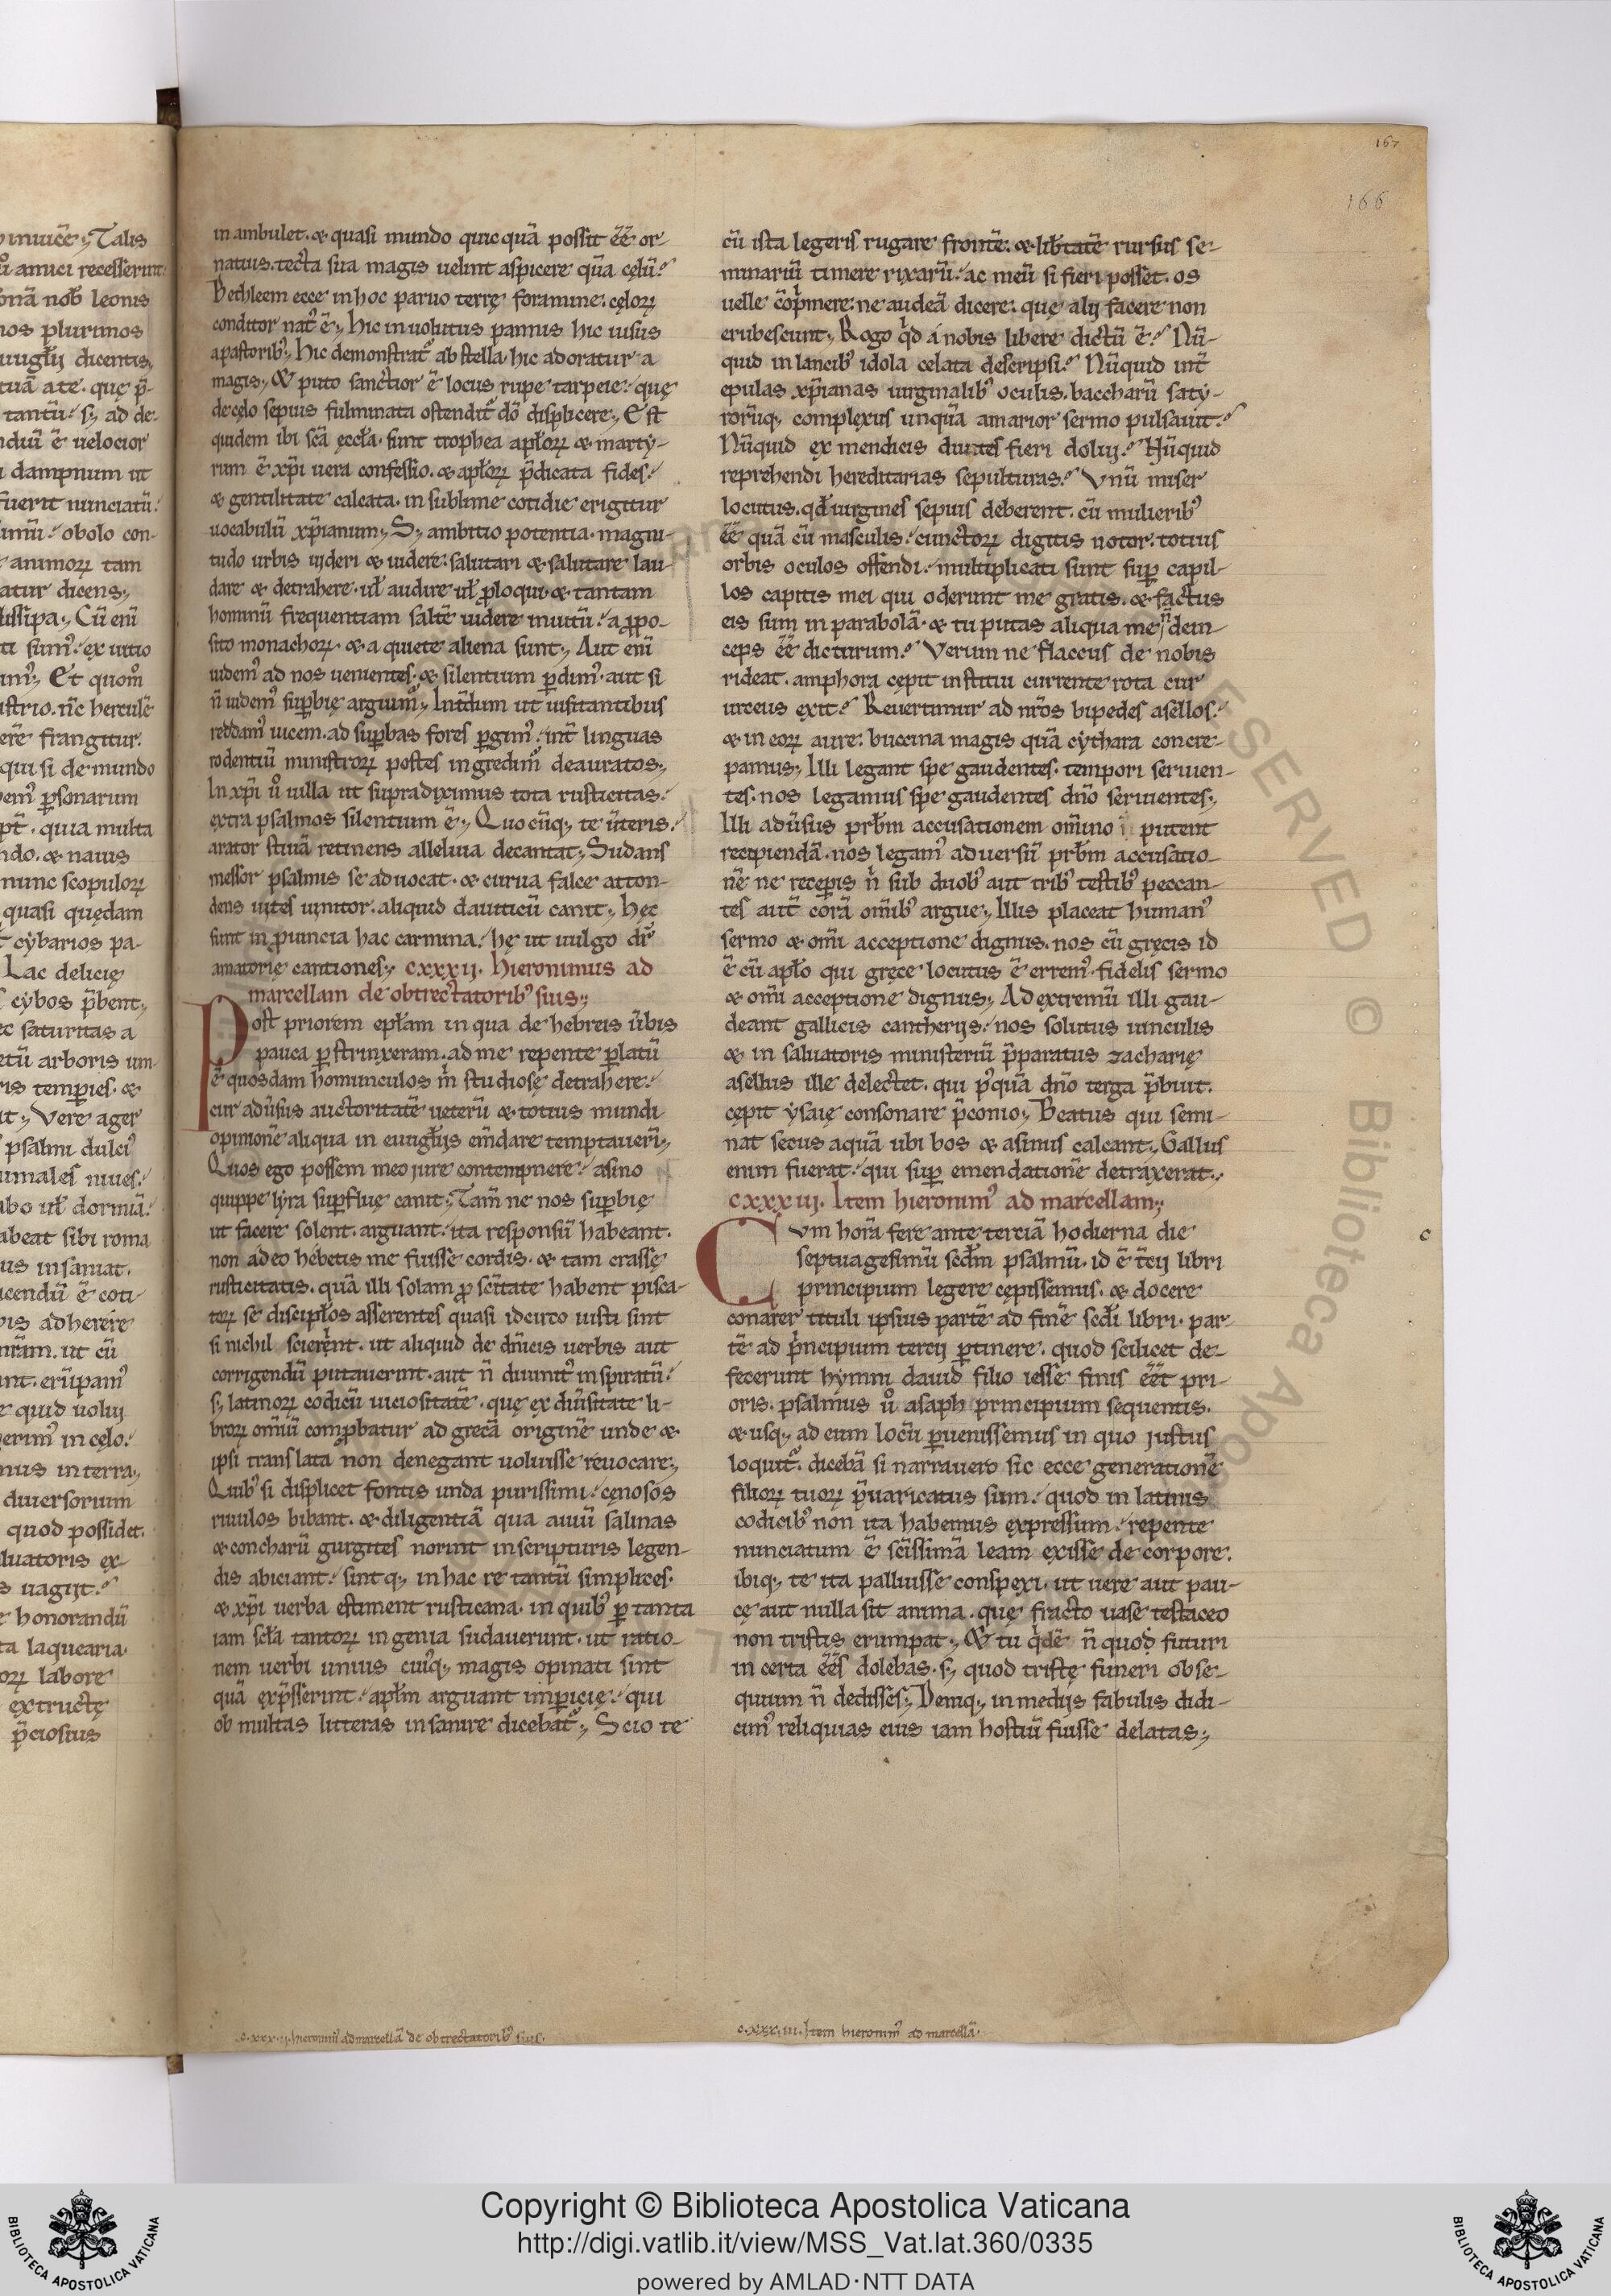 167
166
in ambulet. & quasi mundo quicquā possit ēē or-
natius. tecta sua magis uelint aspicere quā cęlū?
Bethleem ecce in hoc paruo terrę foramine. cęloꝝ
conditor natꝰ ē; hic inuolutus pannis hic uisus
a pastoribꝰ; hic demonstratˀ ab stella. hic adoratur a
magis; & puto sanctior ē locus rupe tarpeie. quę
de cęlo sepius fulminata ostenditˀ dō displicere; Est
quidem ibi scā ęccła. sunt trophea apłoꝝ & marty-
rum ē xp̄i uera confessio. & apłoꝝ p̄dicata fides.
& gentilitate calcata. in sublime cotidie erigitur
uocabulū xp̄ianum; S; ambitio potentia. magni-
tudo urbis uideri & uidere. salutari & salutare lau-
dare & detrahere. uł audire uł ꝓloqui. & tantam
hominū frequentiam saltē uidere inuitū. a ꝓpo-
sito monachoꝝ. & a quiete aliena sunt; Aut eni
uidemꝰ ad nos uenientes. & silentium ꝑdimꝰ. aut si
n̄ uidemꝰ supbię arguimˀ; Int̄dum ut uisitantibus
reddamꝰ uicem. ad supbas fores ꝑgimꝰ. int̄ linguas
rodentiū ministroꝝ postes ingredimˀ deauratos;
In xp̄i ů uilla ut supradiximus tota rusticitas.
extra psalmos silentium ē; Quocūq; te ūteris.
arator stiuā retinens alleluia decantat; Sudans
messor psalmis se aduocat. & curua falce atton-
dens uites uinitor. aliquid dauiticū canit; hęc
sunt in ꝓuincia hac carmina. hę ut uulgo dr̄
amatorię cantiones; cxxxij. hieronimus ad
marcellam de obtrectatoribꝰ suis;
Post priorem epłam in qua de hebreis ūbis
pauca ꝑstrinxeram. ad me repente ꝑlatū
ē quosdam homunculos m̄ studiose detrahere.
cur adūsus auctoritatē ueterū & totius mundi
opinionē aliqua in euuglijs em̄dare temptauer̄;
Quos ego possem meo jure contempnere. asino
quippe lyra supfluę canit; Tam̄ ne nos supbię
ut facere solent. arguant. ita responsū habeant.
non adeo hebetis me fuisse cordis. & tam crassę
rusticitatis. quā illi solam ꝓ sc̄itate habent pisca-
toꝝ se discipłos asserentes quasi idcirco iusti sint
si nichil scierent. ut aliquid de dn̄icis uerbis aut
corrigendū putauerint. aut n̄ diuinitꝰ inspiratū.
s; latinoꝝ codicū uiciositatē. quę ex diūsitate li-
broꝝ om̄iū comꝓbatur ad grecā originē unde &
ipsi translata non denegant uoluisse reuocare;
Quibꝰ si displicet fontis unda purissimi. cęnosos
riuulos bibant. & diligentiā qua auiū salinas
& concharū gurgites norint in scripturis legen-
dis abiciant. sintq; in hac re tantū simplices.
& xp̄i uerba estiment rusticana. in quibꝰ ꝑ tanta
iam scła tantoꝝ ingenia sudauerunt. ut ratio-
nem uerbi unius cuiq; magis opinati sint
quā exp̄sserint. apłm arguant impicię. qui
ob multas litteras insanire dicebatˀ; Scio te
cū ista legeris rugare frontē. & libtatē rursus se-
minariū timere rixarū. ac meū si fieri posset. os
uelle cōp̄mere. ne audeā dicere. quę alij facere non
erubescunt; Rogo qd̄ a nobis libere dictū ē? Nū-
quid in lancibꝰ idola celata descripsi? Nūquid int̄
epulas xp̄ianas uirginalibꝰ oculis. baccharū saty-
rorūq; complexus unquā amarior sermo pulsauit?
Nūquid ex mendicis diuites fieri dolui? Nūquid
reprehendi hereditarias sepulturas? Vnū miser
locutus. qd̄ uirgines sepius deberent. cū mulieribꝰ
ēē quā cū masculis. cunctoꝝ digitis notor. totius
orbis oculos offendi. multiplicati sunt sup capil-
los capitis mei qui oderunt me gratis. & factus
eis sum in parabolā. & tu putas aliqua me n̄ dein-
ceps ēē dicturum? Verum ne flaccus de nobis
rideat. amphora cępit institui currente rota cur
urceus exit? Reuertimur ad nr̄os bipedes asellos.
& in eoꝝ aure. buccina magis quā cythara concre-
pamus; Illi legant spe gaudentes. tempori seruien-
tes. nos legamus spe gaudentes dn̄o seruientes;
Illi adūsus prbm̄ accusationem om̄ino putent
recipiendā. nos legamꝰ aduersū prbm̄ accusatio-
nē ne receperis n̄ sub duobꝰ aut tribꝰ testibꝰ peccan-
tes aut̄ corā om̄ibꝰ argue; Illis placeat humanꝰ
sermo & om̄i acceptione dignus. nos cū gręcis id
ē cū apło qui gręce locutus ē erremꝰ. fidelis sermo
& om̄i acceptione dignus; Ad extremū illi gau-
deant gallicis cantherijs. nos solutus uinculis
& in saluatoris ministeriū p̄paratus zacharię
asellus ille delectet. qui p̄quā dn̄o terga p̄buit.
cępit ysaię consonare p̄conio; Beatus qui semi-
nat secus aquā ubi bos & asinus calcant; Gallus
enim fuerat. qui sup emendationē detraxerat;
cxxxiij. Item hieronimꝰ ad marcellam;
Cvm horā fere ante terciā hodierna die
septuagesimū scdm̄ psalmū. id ē t̄cij libri
principium legere cępissemus. & docere
conarer tituli ipsius partē ad finē scdi̅ libri. par-
tē ad p̄ncipium tercij ꝑtinere. quod scilicet de-
fecerunt hymni dauid filio iesse finis ēēt pri-
oris. psalmus ů asaph principium sequentis.
& usq; ad eum locū ꝑuenissemus in quo justus
loquitˀ. dicebā si narrauero sic ecce generationē
filioꝝ tuoꝝ p̄uaricatus sum. quod in latinis
codicibꝰ non ita habemus expressum. repente
nunciatum ē sc̄issimā leam exisse de corpore.
ibiq; te ita palluisse conspexi. ut uere aut pau-
cę aut nulla sit anima. quę fracto uase testaceo
non tristis erumpat; & tu qdē n̄ quod futuri
incerta ēēs dolebas. s; quod tristę funeri obse-
quium n̄ dedisses; Deniq; in medijs fabulis didi-
cimꝰ reliquias eius iam hostiū fuisse delatas;
c
c.xxx.ij. hieronimꝰ ad marcellā de obtrectatoribꝰ suis.
c.xxx.iii. Item hieronimꝰ ad marcellā.
Copyright © Biblioteca Apostolica Vaticana
http://digi.vatlib.it/view/MSS_Vat.lat.360/0335
powered by AMLAD·NTT DATA
BIBLIOTECA APOSTOLICA VATICANA
BIBLIOTECA APOSTOLICA VATICANA